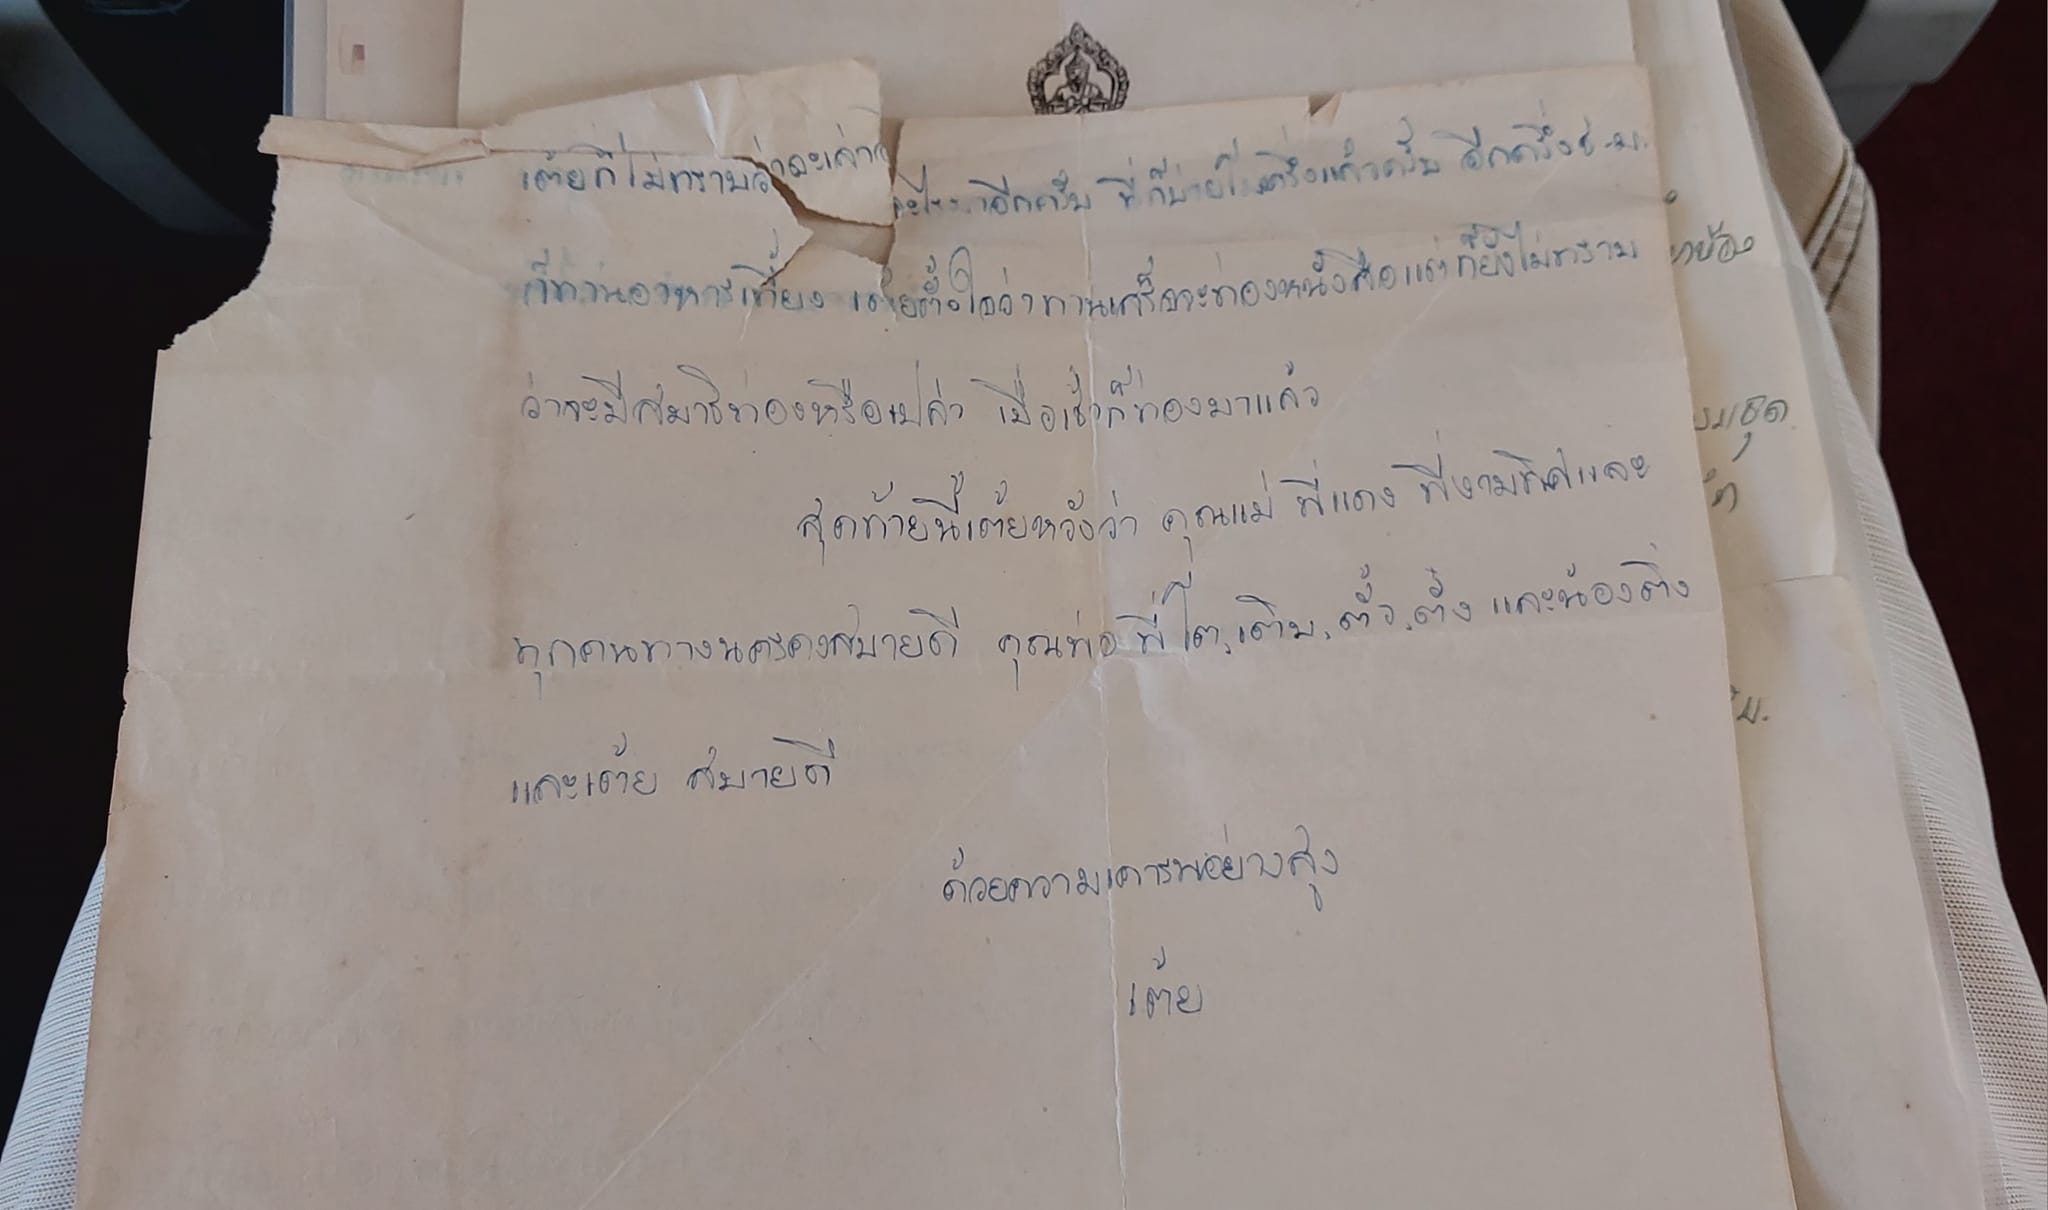 เต้ยก็ไม่ทราบว่าจะเล่า อะไร อีกครับ นี่ก็บ่ายโมงครึ่งแล้วครับ อีกครึ่งช.ม.
ก็ทานอาหารเที่ยง เต้ยตั้งใจว่าทานเสร็จจะท่องหนังสือแต่ก็ยังไม่ทราบ
ว่าจะมีสมาธิท่องหรือเปล่า เมื่อเช้าก็ท่องมาแล้ว
สุดท้ายนี้เต้ยหวังว่า คุณแม่ พี่แดง พี่งามพิศและ
ทุกคนทางนครคงสบายดี คุณพ่อ พี่โต,เติม,ตั้ว,ตั้ง และน้องติ่ง
และเต้ย สบายดี
ด้วยความเคารพอย่างสูง
เต้ย